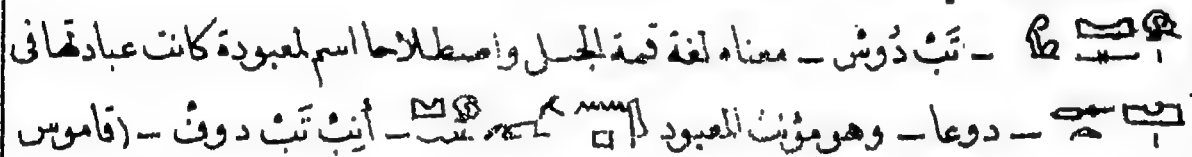 ـ تَبْ دُوسْ ـ معناه لغة قمة الجبل واصطلاحا اسم لمعبودة كانت عبادتها فى
ـ دوعا ـ وهو مؤنث المعبود ـ أَنِبْ تَبْ دوفْ ـ (قاموس